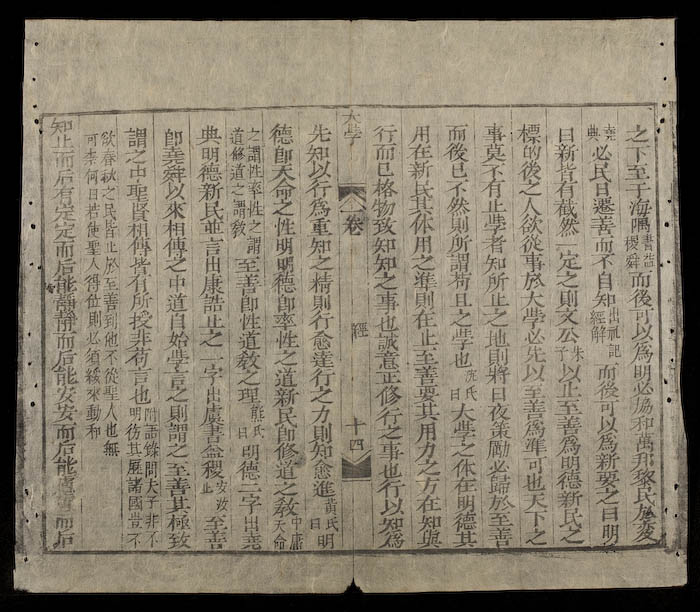 之下至于海隅書益稷舜而後可以爲明必協和萬邦黎民於變
堯典必民日遷善而不自知出礼記經解而後可以爲新要之曰明
曰新皆有截然一定之則文公朱子以止至善爲明德新民之
標的後之人欲從事於大學必先以至善爲準可也天下之
事莫不有止學者知所止之地則將日夜策勵必歸於至善
而後已不然則所謂苟且之學也沈氏曰大學之体在明德其
用在新民其体用之準則在止至善要其用力之方在知與
行而已格物致知知之事也誠意正修行之事也行以知爲
大學 一卷 經 十四
先知以行爲重知之精則行愈達行之力則知愈進黄氏曰明
德即天命之性明明德即率性之道新民即修道之敎中庸天命
之謂性率性之謂道修道之謂敎至善即性道敎之理熊氏曰明德二字出堯
典明德新民並言出康誥止之一字出虞書益稷安汝止至善
即堯舜以來相傳之中道自始學言之則謂之至善其極致
謂之中聖賢相傳皆有所授非苟言也附語錄問夫子非不明彷其歷諸國豈不
欲春秋之民皆止於至善到他不從聖人也無
可柰何曰若使聖人得位則必須綏來動和
知止而后有定定而后能靜靜而后能安安而后能慮慮而后